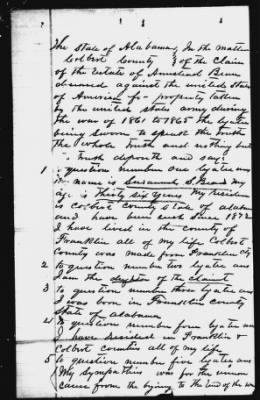 The State of Alabama, In the matter
Colbert County } of the Claim
of the Estate of Armstead Bean
deceased against the united State
of America for property taken
by the united states army during
the war of 1861 to 1865 the
being sworn to speak the truth
the whole truth and nothing but
truth deposeth and says
1 question number one
name is S. Bean my
age is thirty six years My residence
is Colbert County State of alabama
and have been such since 1872
I have lived in the county of
Franklin all of my life Colbert
County was made from Franklin
2 to question number two
I am the of the claimt
3 to question number three
I was born in Franklin County
State of alabama
4 to question number four
I have resided in Franklin &
Colbert counties all of my life
5 to question number five
My sympathies was for the union
cause from the to the End of the war